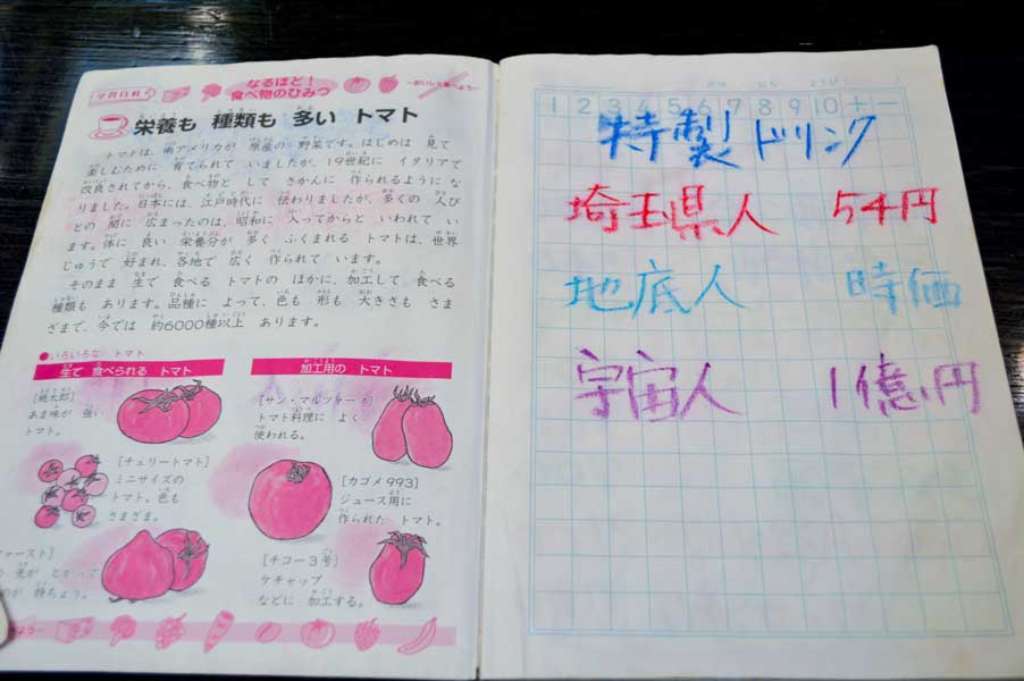 なるほど！
食べ物のひみつ
栄養も 種類も 多い トマト
トマトは、南アメリカが 原産の 野菜です。はじめは 見て
楽しむために 育てられて いましたが、19世紀に イタリアで
改良されてから、食べ物と して さかんに 作られるように な
りました。日本には、江戸時代に 伝わりましたが、多くの 人び
との 間に 広まったのは、昭和に 入ってからと いわれて い
ます。体に 良い 栄養分が 多く ふくまれる トマトは、世界
じゅうで 好まれ、各地で 広く 作られて います。
そのまま 生で 食べる トマトの ほかに、加工して 食べる
種類も あります。品種に よって、色も 形も 大きさも さま
ざまで、今では 約6000種以上 あります。
●いろいろな トマト
生で 食べられる トマト
[桃太郎]
あま味が 強い
トマト。
[チェリートマト]
ミニサイズの
トマト。色も
さまざま。
加工用の トマト
トマト料理に よく
使われる。
[カゴメ993]
ジュース用に
作られた トマト。
[チコー3号]
ケチャップ
などに 加工する。
1 2 3 4 5 6 7 8 9 10 + −
特製ドリンク
埼玉県人 54円
地底人 時価
宇宙人 1億円